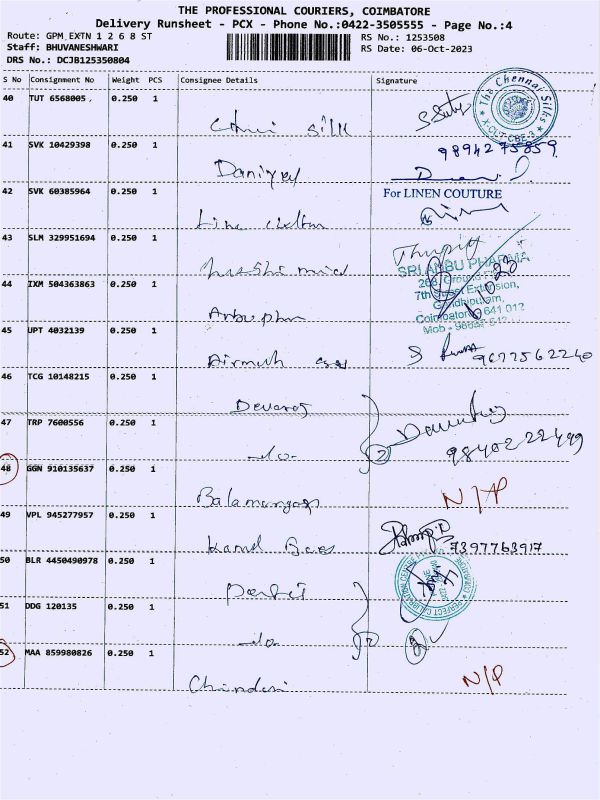 THE PROFESSIONAL COURIERS, COIMBATORE
Delivery Runsheet - PCX - Phone No.:0422-3505555 - Page No.:4
Route: GPM_EXTN 1 2 6 8 ST
RS No.: 1253508
Staff: BHUVANESHWARI
RS Date: 06-Oct-2023
DRS No.: DCJB125350804
S No Consignment No Weight PCS Consignee Details Signature
40 TUT 6568005 0.250 1
The Chennai Silks
silk
41 SVK 10429398 0.250 1
9894275859
Daniyel
42 SVK 60385964 0.250 1
For LINEN COUTURE
43 SLM 329951694 0.250 1
SRI ANBU PHARMA
44 IXM 504363863 0.250 1
7th Street Extension,
Gandhipuram,
Coimbatore 641 012
45 UPT 4032139 0.250 1
9677562240
46 TCG 10148215 0.250 1
Devaraj
47 TRP 7600556 0.250 1
-do-
2
9840222499
48 GGN 910135637 0.250 1
N/P
Balamurugan
49 VPL 945277957 0.250 1
7397763917
50 BLR 4450490978 0.250 1
51 DDG 120135 0.250 1
-do-
2
52 MAA 859980826 0.250 1
N/P